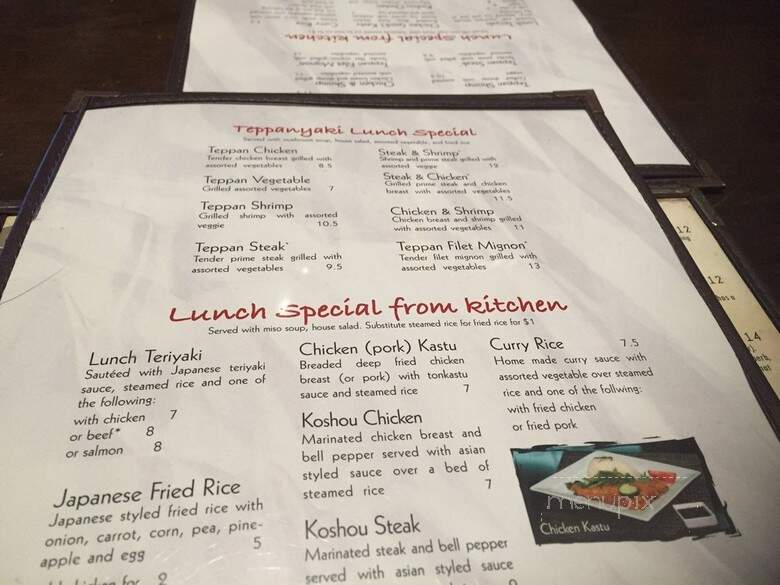 Lunch Special from kitchen
Teppan Steak
Teppan Shrimp
Teppan Filet Mignon
Chicken & Shrimp
Teppanyaki Lunch Special
Teppan Chicken
Tender chicken breast grilled with
assorted vegetables 8.5
Teppan Vegetable
Grilled assorted vegetables 7
Teppan Shrimp
Grilled shrimp with assorted
veggie 10.5
Teppan Steak*
Tender prime steak grilled with
assorted vegetables 9.5
Steak & Shrimp*
Shrimp and prime steak grilled with
assorted veggie 12
Steak & Chicken*
Grilled prime steak and chicken
breast with assorted vegetables
11.5
Chicken & Shrimp
Chicken breast and shrimp grilled
with assorted vegetables 11
Teppan Filet Mignon*
Tender filet mignon grilled with
assorted vegetables 13
Lunch Special from kitchen
Served with miso soup, house salad. Substitute steamed rice for fried rice for $1
Lunch Teriyaki
Sautéed with Japanese teriyaki
sauce, steamed rice and one of
the following:
with chicken 7
or beef* 8
or salmon 8
Japanese Fried Rice
Japanese styled fried rice with
onion, carrot, corn, pea, pine-
apple and egg 5
Chicken (pork) Kastu
Breaded deep fried chicken
breast (or pork) with tonkastu
sauce and steamed rice 7
Koshou Chicken
Marinated chicken breast and
bell pepper served with asian
styled sauce over a bed of
steamed rice 7
Koshou Steak
Marinated steak and bell pepper
served with asian styled sauce
Curry Rice 7.5
Home made curry sauce with
assorted vegetable over steamed
rice and one of the follwing:
with fried chicken
or fried pork
menupix
Chicken Kastu
12
12
14